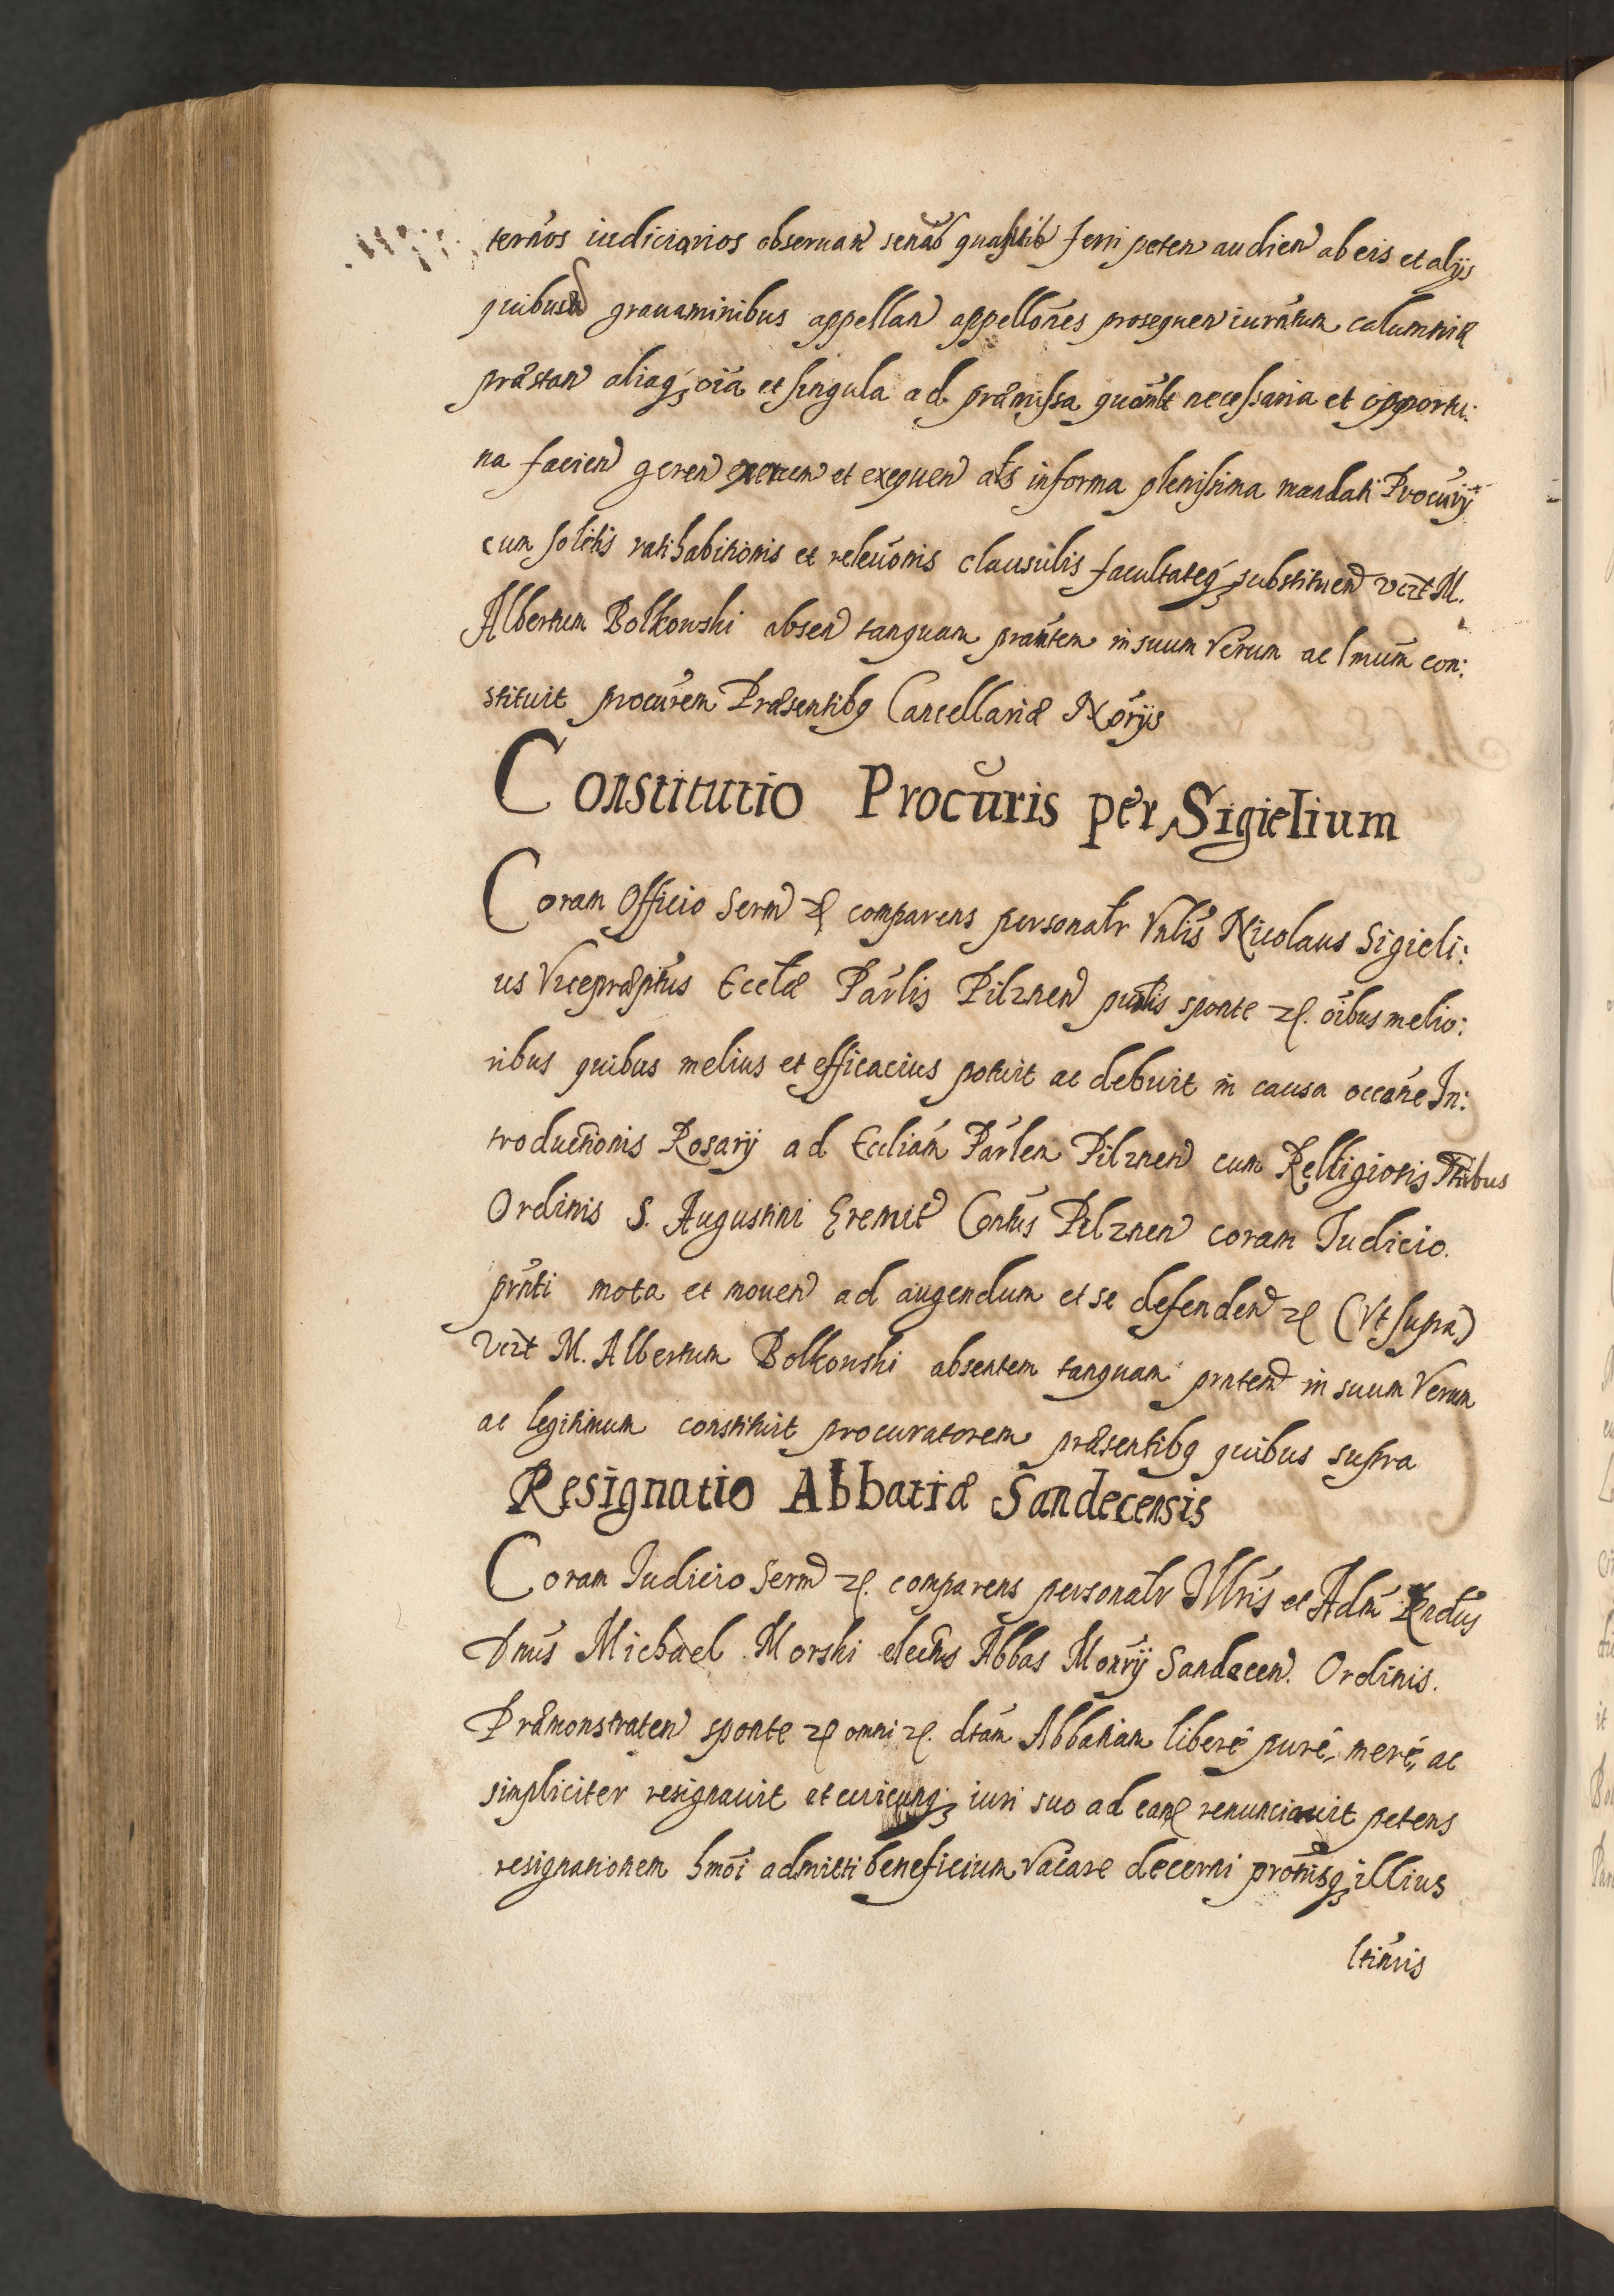 ternos iudiciarios obseruan senās quaslib ferri peten audien ab eis et alijs
quibusd grauaminibus appellan appellōnes prosequen iurn̄tum calumniæ
præstan aliaq; oīa et singula ad præmissa quomlt necessaria et opportu:
na facien geren exercen et exequen als in forma plenissima mandati Procurij
cum solitis ratihabitionis et releuōnis clausulis facultateq; substituend vizt M.
Albertum Bolkowski absen tanquam præntem in suum Verum ac lmūm con:
stituit procūrem Præsentibq Cancellariæ Nōrijs
Constitutio Procūris per Sigielium
Coram Officio Serm ꝛꝭ comparens personalr Vnlis Nicolaus Sigieli:
us Vicepræptus Ecclæ Parlis Pilznen pnlis sponte ꝛꝭ. oībus melio:
ribus quibus melius et efficacius potuit ac debuit in causa occōne In:
troductionis Rosarij ad Eccliam Parlen Pilznen cum Relligiosis Frībus
Ordinis S. Augustini Eremit Contus Pilznen coram Iudicio.
prnti mota et mouen ad augendum et se defenden ꝛꝭ (Vt supra)
Vizt M. Albertum Bolkowski absentem tanquam prntem in suum Verum
ac legitimum constituit procuratorem præsentibq quibus supra
Resignatio Abbatiæ Sandecensis
Coram Iudicio Serm ꝛꝭ. comparens personalr Illris et Adm Rndus
Dnus Michael Morski electus Abbas Monrij Sandecen. Ordinis.
Præmonstraten sponte ꝛꝭ omni ꝛꝭ. dtam Abbatiam liberè purè, merè, ac
simpliciter resignauit et cuicunq; iuri suo ad eanꝭ renunciauit petens
resignationem hmōi admitti beneficium Vacare decerni promsq; illius
ltimis